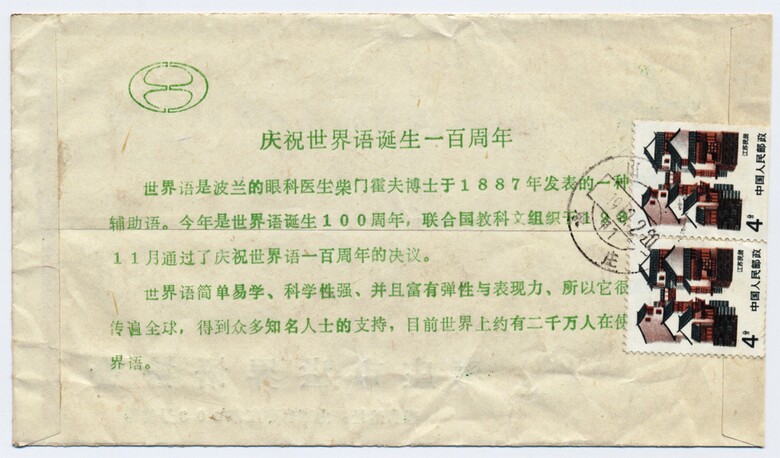 庆祝世界语诞生一百周年
世界语是波兰的眼科医生柴门霍夫博士于1887年发表的一种
辅助语。今年是世界语诞生100周年，联合国教科文组织于19
11月通过了庆祝世界语一百周年的决议。
世界语简单易学、科学性强、并且富有弹性与表现力、所以它很
传遍全球，得到众多知名人士的支持，目前世界上约有二千万人在使
界语。
江苏民居
中国人民邮政
4分
江苏民居
中国人民邮政
4分